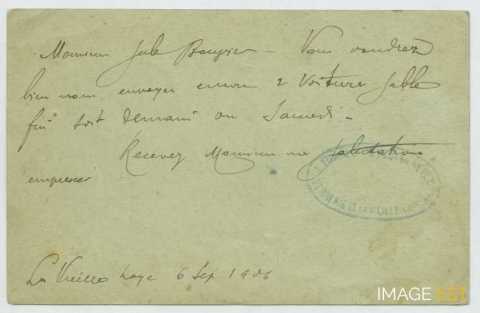 Monsieur Jule Bouyrier - Vous voudrez
bien nous envoyer encore 2 Voiture Sable
fin soit Demain ou Samedi -
Recevez Monsieur me salutation
empressé
La Vieille Loye 6 Sep 1906
IMAGE'EST